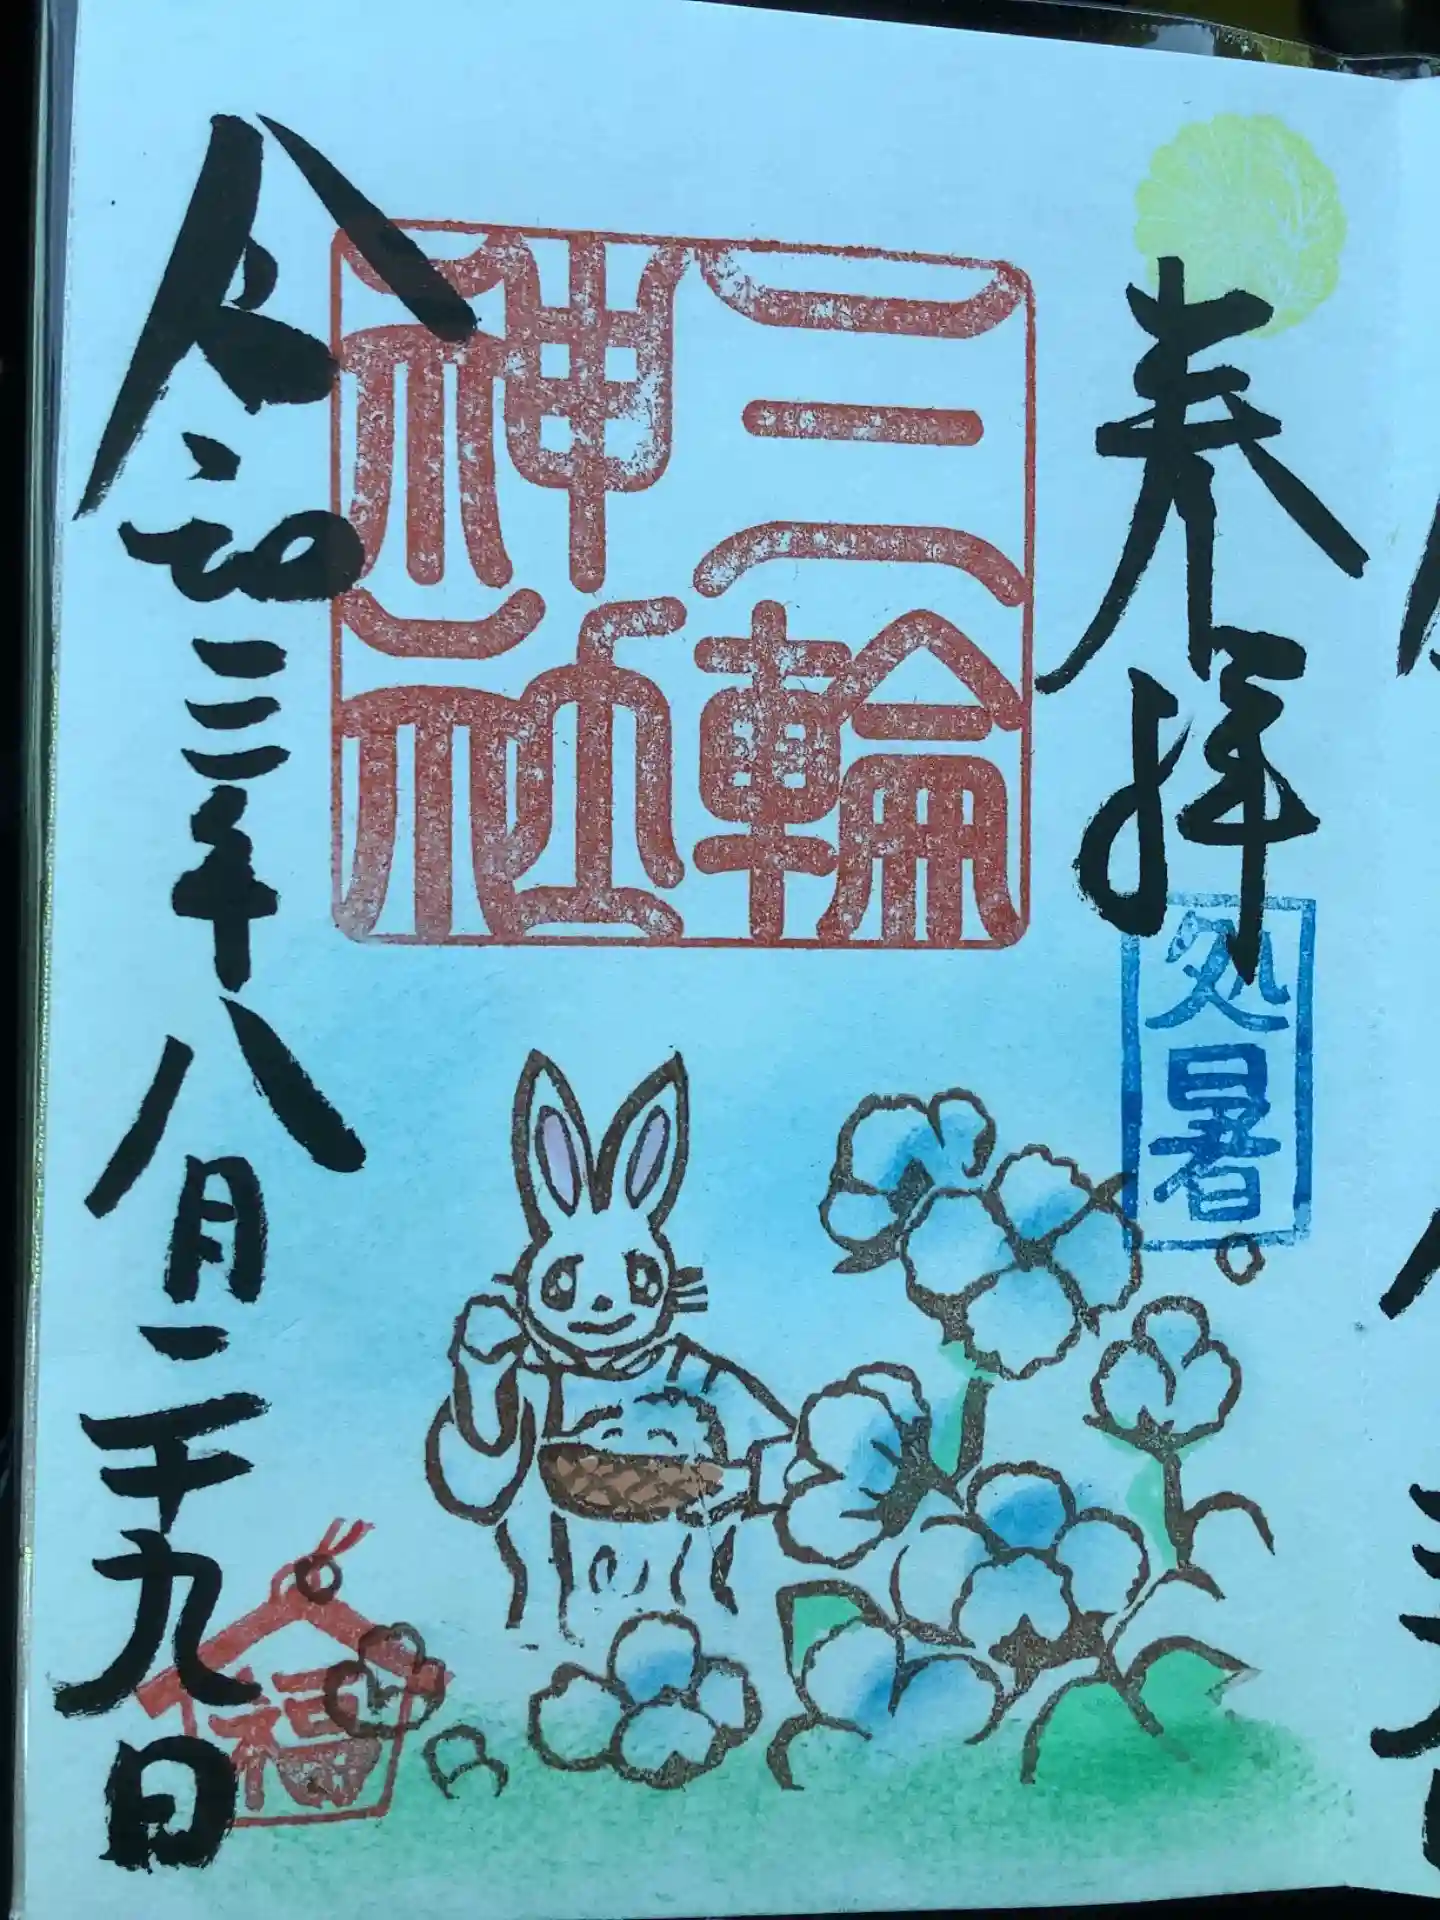 奉拝
処暑
三輪
神社
令和三年八月二十九日
福